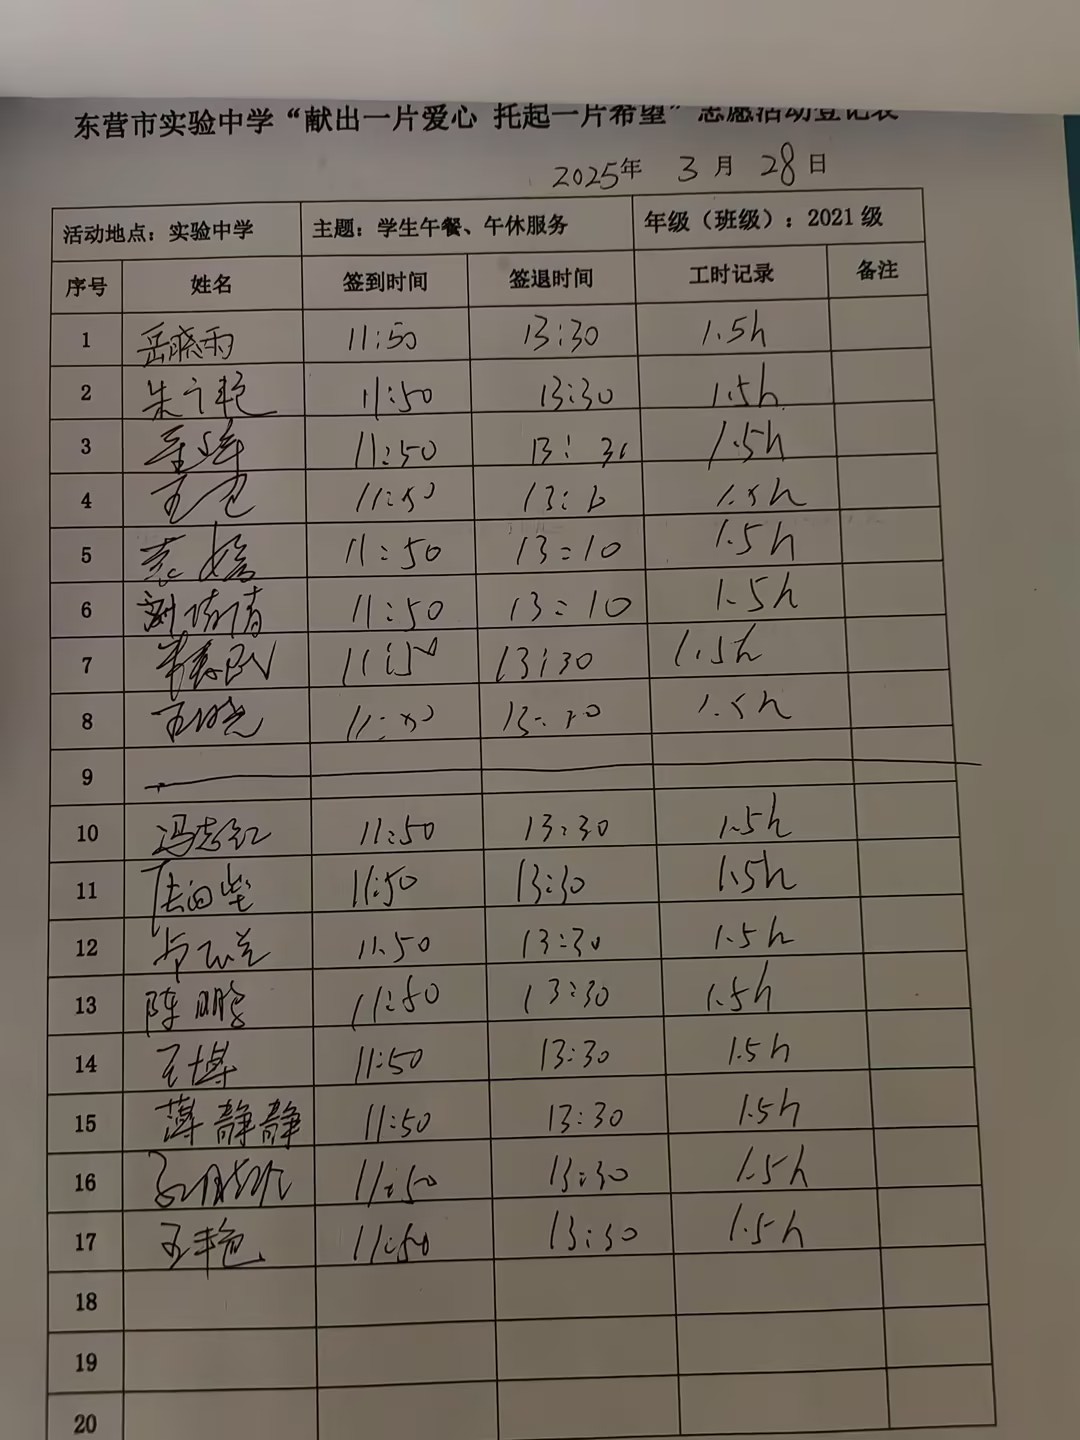 东营市实验中学“献出一片爱心 托起一片希望”志愿活动登记表
2025年 3月 28日
活动地点：实验中学 主题：学生午餐、午休服务 年级（班级）：2021级
序号 姓名 签到时间 签退时间 工时记录 备注
1 岳晓雨 11:50 13:30 1.5h
2 11:50 13:30 1.5h
3 11:50 13:30 1.5h
4 11:50 1.5h
5 袁 11:50 13:10 1.5h
6 刘倩倩 11:50 13:10 1.5h
7 11:50 13:30 1.5h
8 王晓 11:50 1.5h
9
10 冯志红 11:50 13:30 1.5h
11 11:50 13:30 1.5h
12 11:50 13:30 1.5h
13 陈鹏 11:50 13:30 1.5h
14 王博 11:50 13:30 1.5h
15 薄静静 11:50 13:30 1.5h
16 11:50 13:30 1.5h
17 王丰艳 11:50 13:30 1.5h
18
19
20